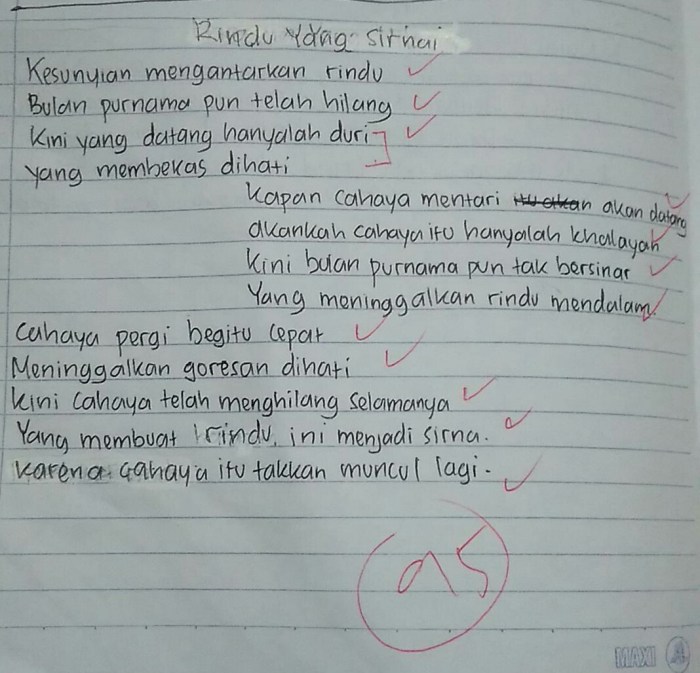 Rindu yang sirnai
Kesunyian mengantarkan rindu
Bulan purnama pun telah hilang
Kini yang datang hanyalah duri
yang membekas dihati
Kapan cahaya mentari akan datang
akankah cahaya itu hanyalah khalayah
Kini bulan purnama pun tak bersinar
Yang meninggalkan rindu mendalam
Cahaya pergi begitu cepat
Meninggalkan goresan dihati
Kini cahaya telah menghilang selamanya
Yang membuat rindu, ini menjadi sirna.
Karena cahaya itu takkan muncul lagi.
95
MAXI